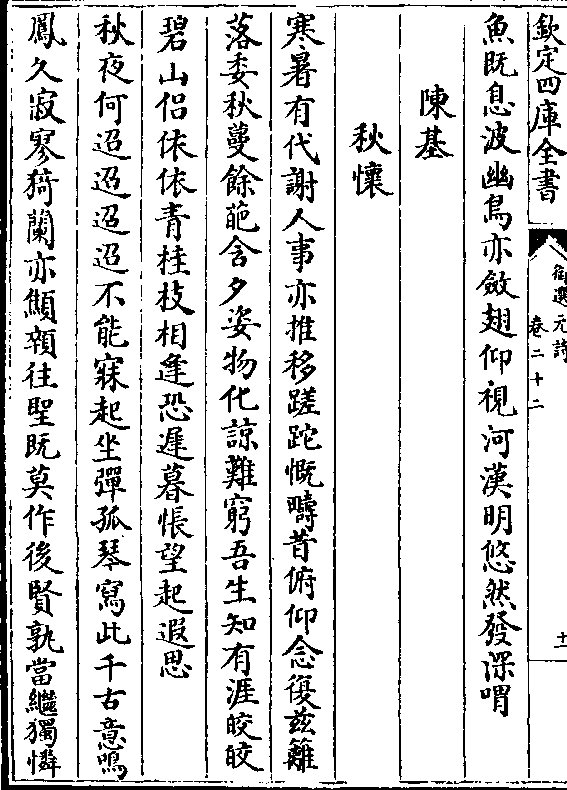 欽定四庫全書
御選元詩
卷二十二
十一
魚既息波幽鳥亦斂翅仰視河漢明悠然發深喟
陳基
秋懷
寒暑有代謝人事亦推移蹉跎慨疇昔俯仰念復兹籬
落委秋蔓餘葩含夕姿物化諒難窮吾生知有涯皎皎
碧山侣依依青桂枝相逢恐遲暮悵望起遐思
秋夜何迢迢迢迢不能寐起坐彈孤琴寫此千古意鳴
鳳久寂寥猗蘭亦顦顇往聖既莫作後賢孰當繼獨憐